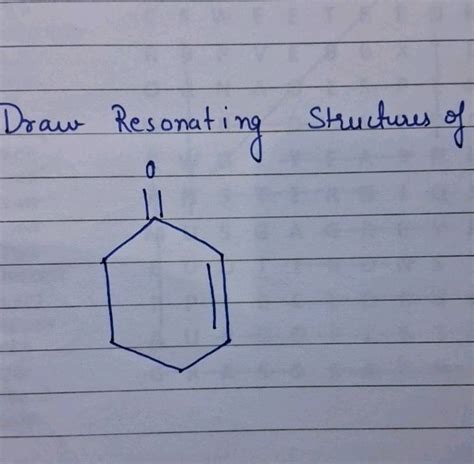 Draw Resonating Structures of
O